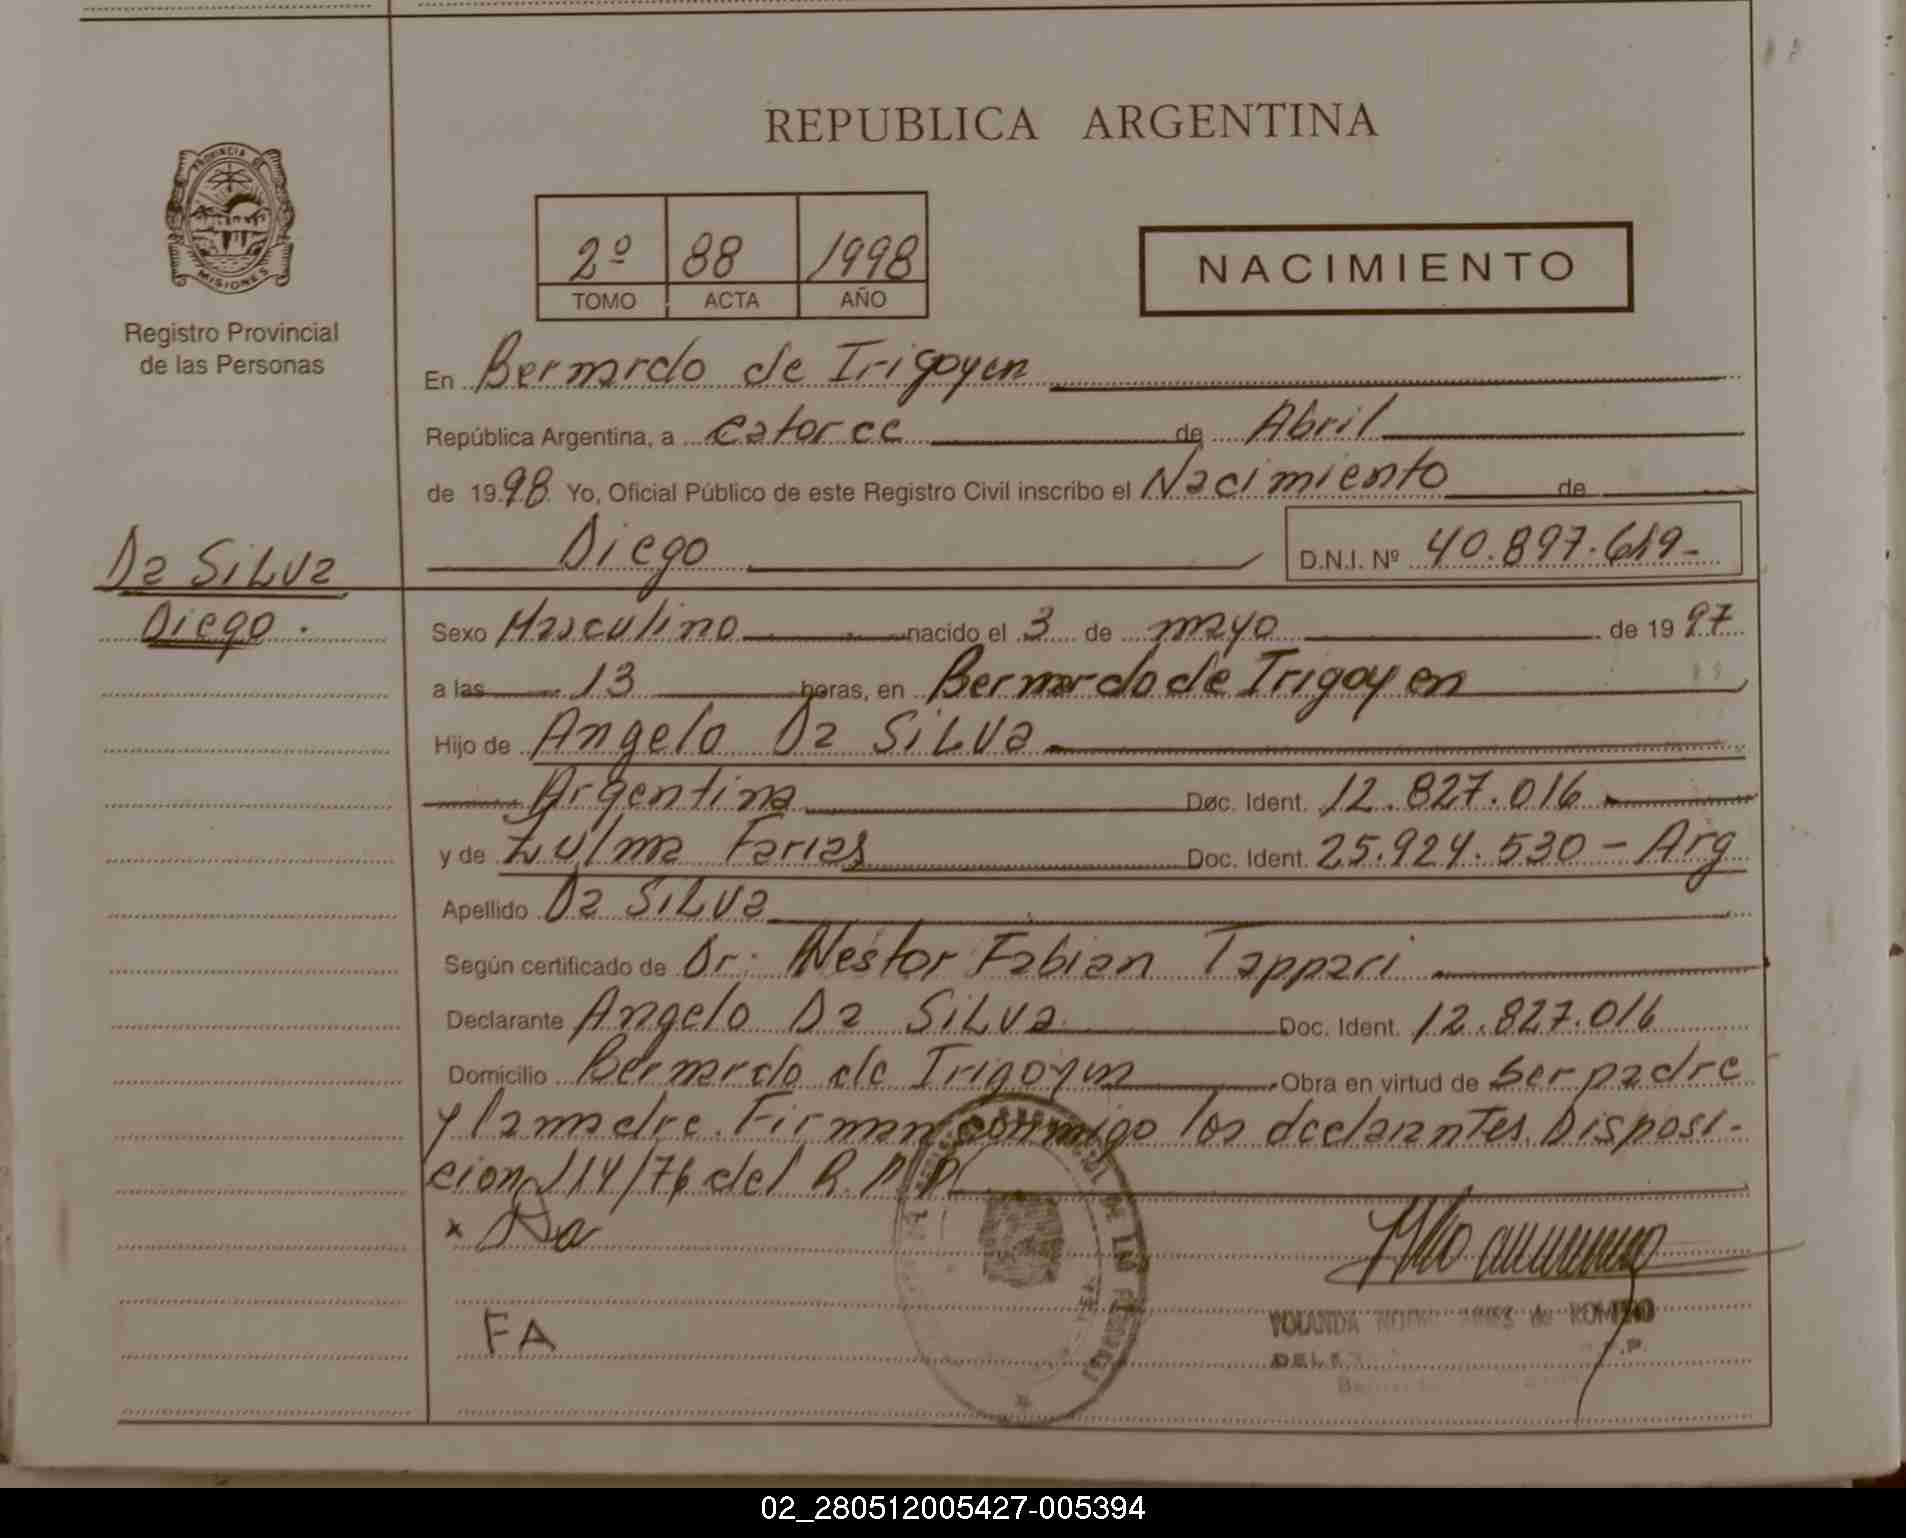 REPUBLICA ARGENTINA
PROVINCIA DE
MISIONES
Registro Provincial
de las Personas
2º 88 1998
TOMO ACTA AÑO
NACIMIENTO
En Bernardo de Irigoyen
República Argentina, a catorce de Abril
de 1998 Yo, Oficial Público de este Registro Civil inscribo el Nacimiento de
Diego D.N.I. Nº 40.897.619-
Da SiLVa
Diego.
Sexo Masculino nacido el 3 de mayo de 1997
a las 13 horas, en Bernardo de Irigoyen
Hijo de Angelo Da SiLVa
Argentina Doc. Ident. 12.827.016
y de Zulma Farias Doc. Ident. 25.924.530 - Arg
Apellido Da SiLVa
Según certificado de Dr. Nestor Fabian Tappari
Declarante Angelo Da SiLVa Doc. Ident. 12.827.016
Domicilio Bernardo de Irigoyen Obra en virtud de ser padre
y la madre. Firman conmigo los declarantes. Disposi-
cion 114/76 del R.P.P
x Da
FA
YOLANDA de ROMERO
02_280512005427-005394